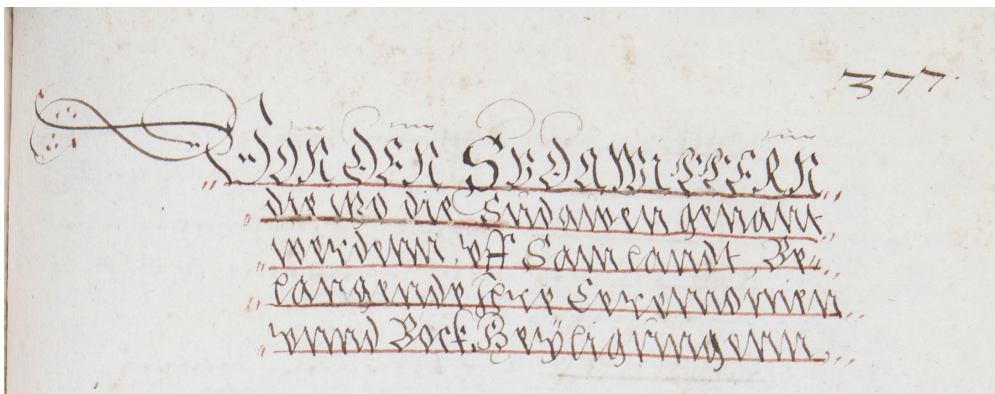 377.
VON DEN SVDAWITTERN
die itzo die Sudawen genant
werdenn vff Samlandt, Be-
langende Ihre Ceremonien
vnnd Bock Heyligungenn